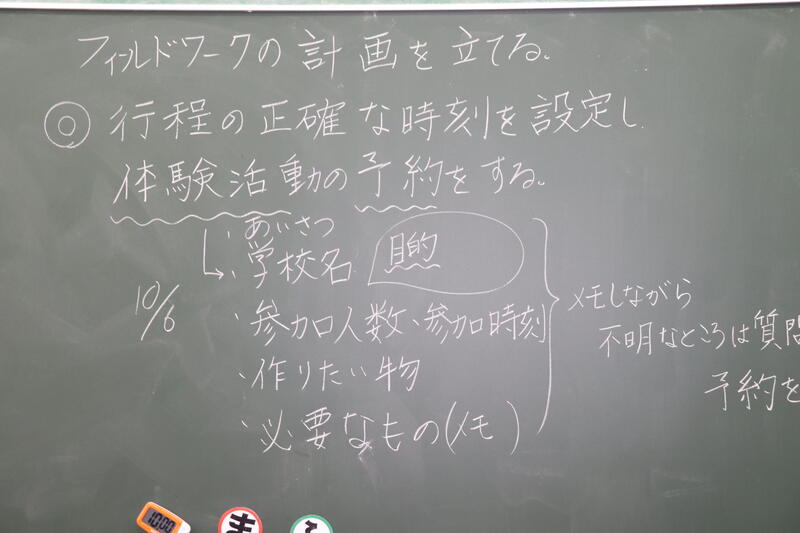 フィールドワークの計画を立てる。
◎ 行程の正確な時刻を設定し
体験活動の予約をする。
・あいさつ
・学校名 目的
10/6
・参加人数、参加時刻
・作りたい物
・必要なもの(メモ )
メモしながら
不明なところは質問
予約を
10:00
ま